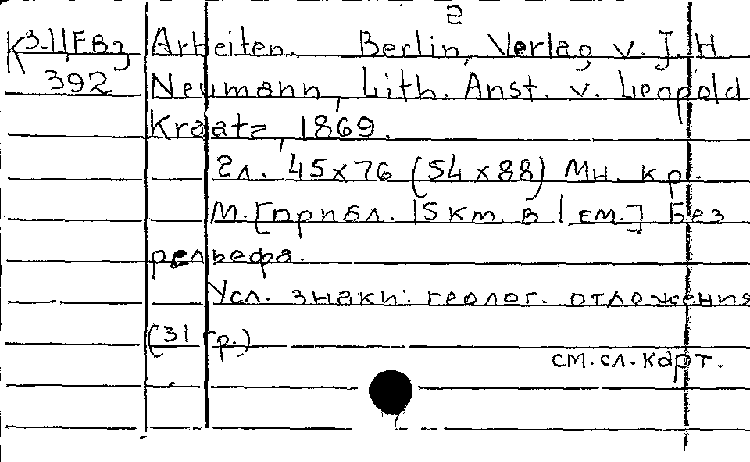 2
К 3-11/FBз Arbeiten. Berlin, Verlag v. J. H.
392 Neumann, Lith. Anst. v. Leopold
Kraatz, 1869.
2л. 45x76 (54x88) Мн. кр.
М. [прибл. 15 km в 1 см.] Без
рельефа.
Усл. знаки: геолог. отложения
(31 гр.)
см. сл. карт.